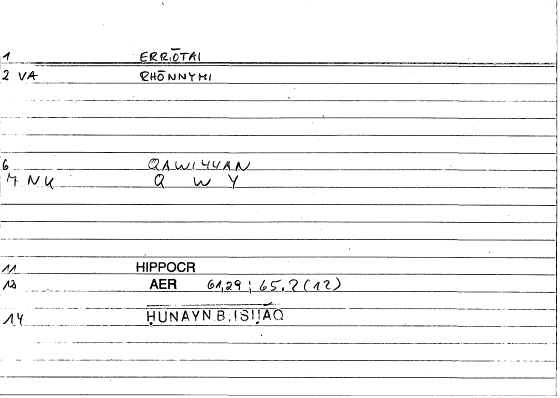 1 ERRIŌTAI
2 VA RHŌNNYMI
6 QAWIYYAN
7 NK Q W Y
11 HIPPOCR
12 AER 61,29; 65.2(12)
14 ḤUNAYN.B.ISḤĀQ